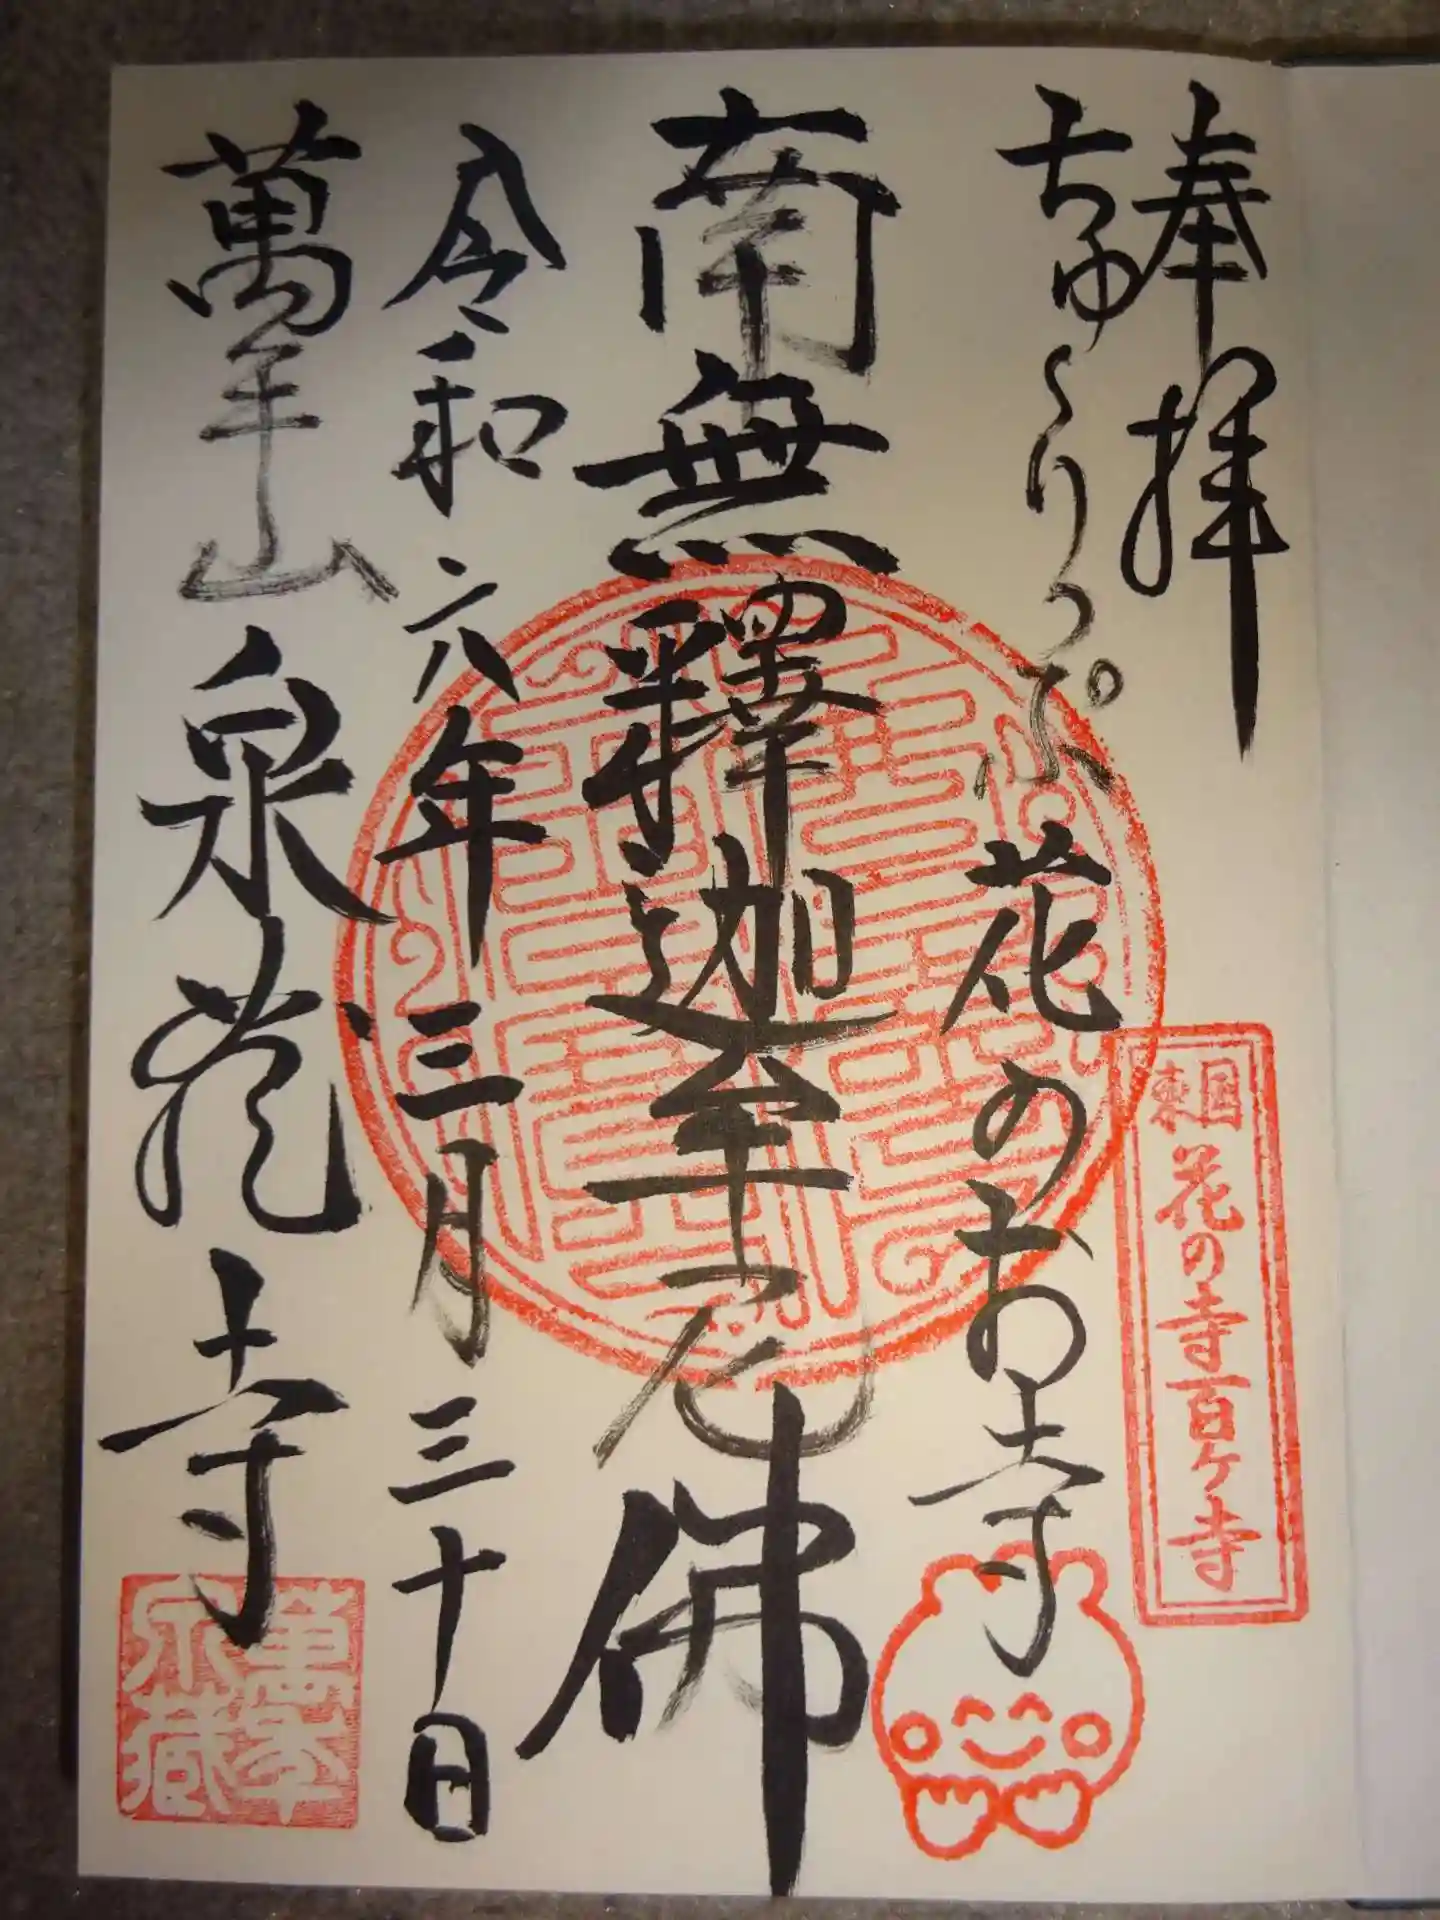 奉拝
ちゅーりっぷ 花のお寺
南無釋迦牟尼佛
令和六年三月三十日
萬年山 泉蔵寺
東国 花の寺百ヶ寺